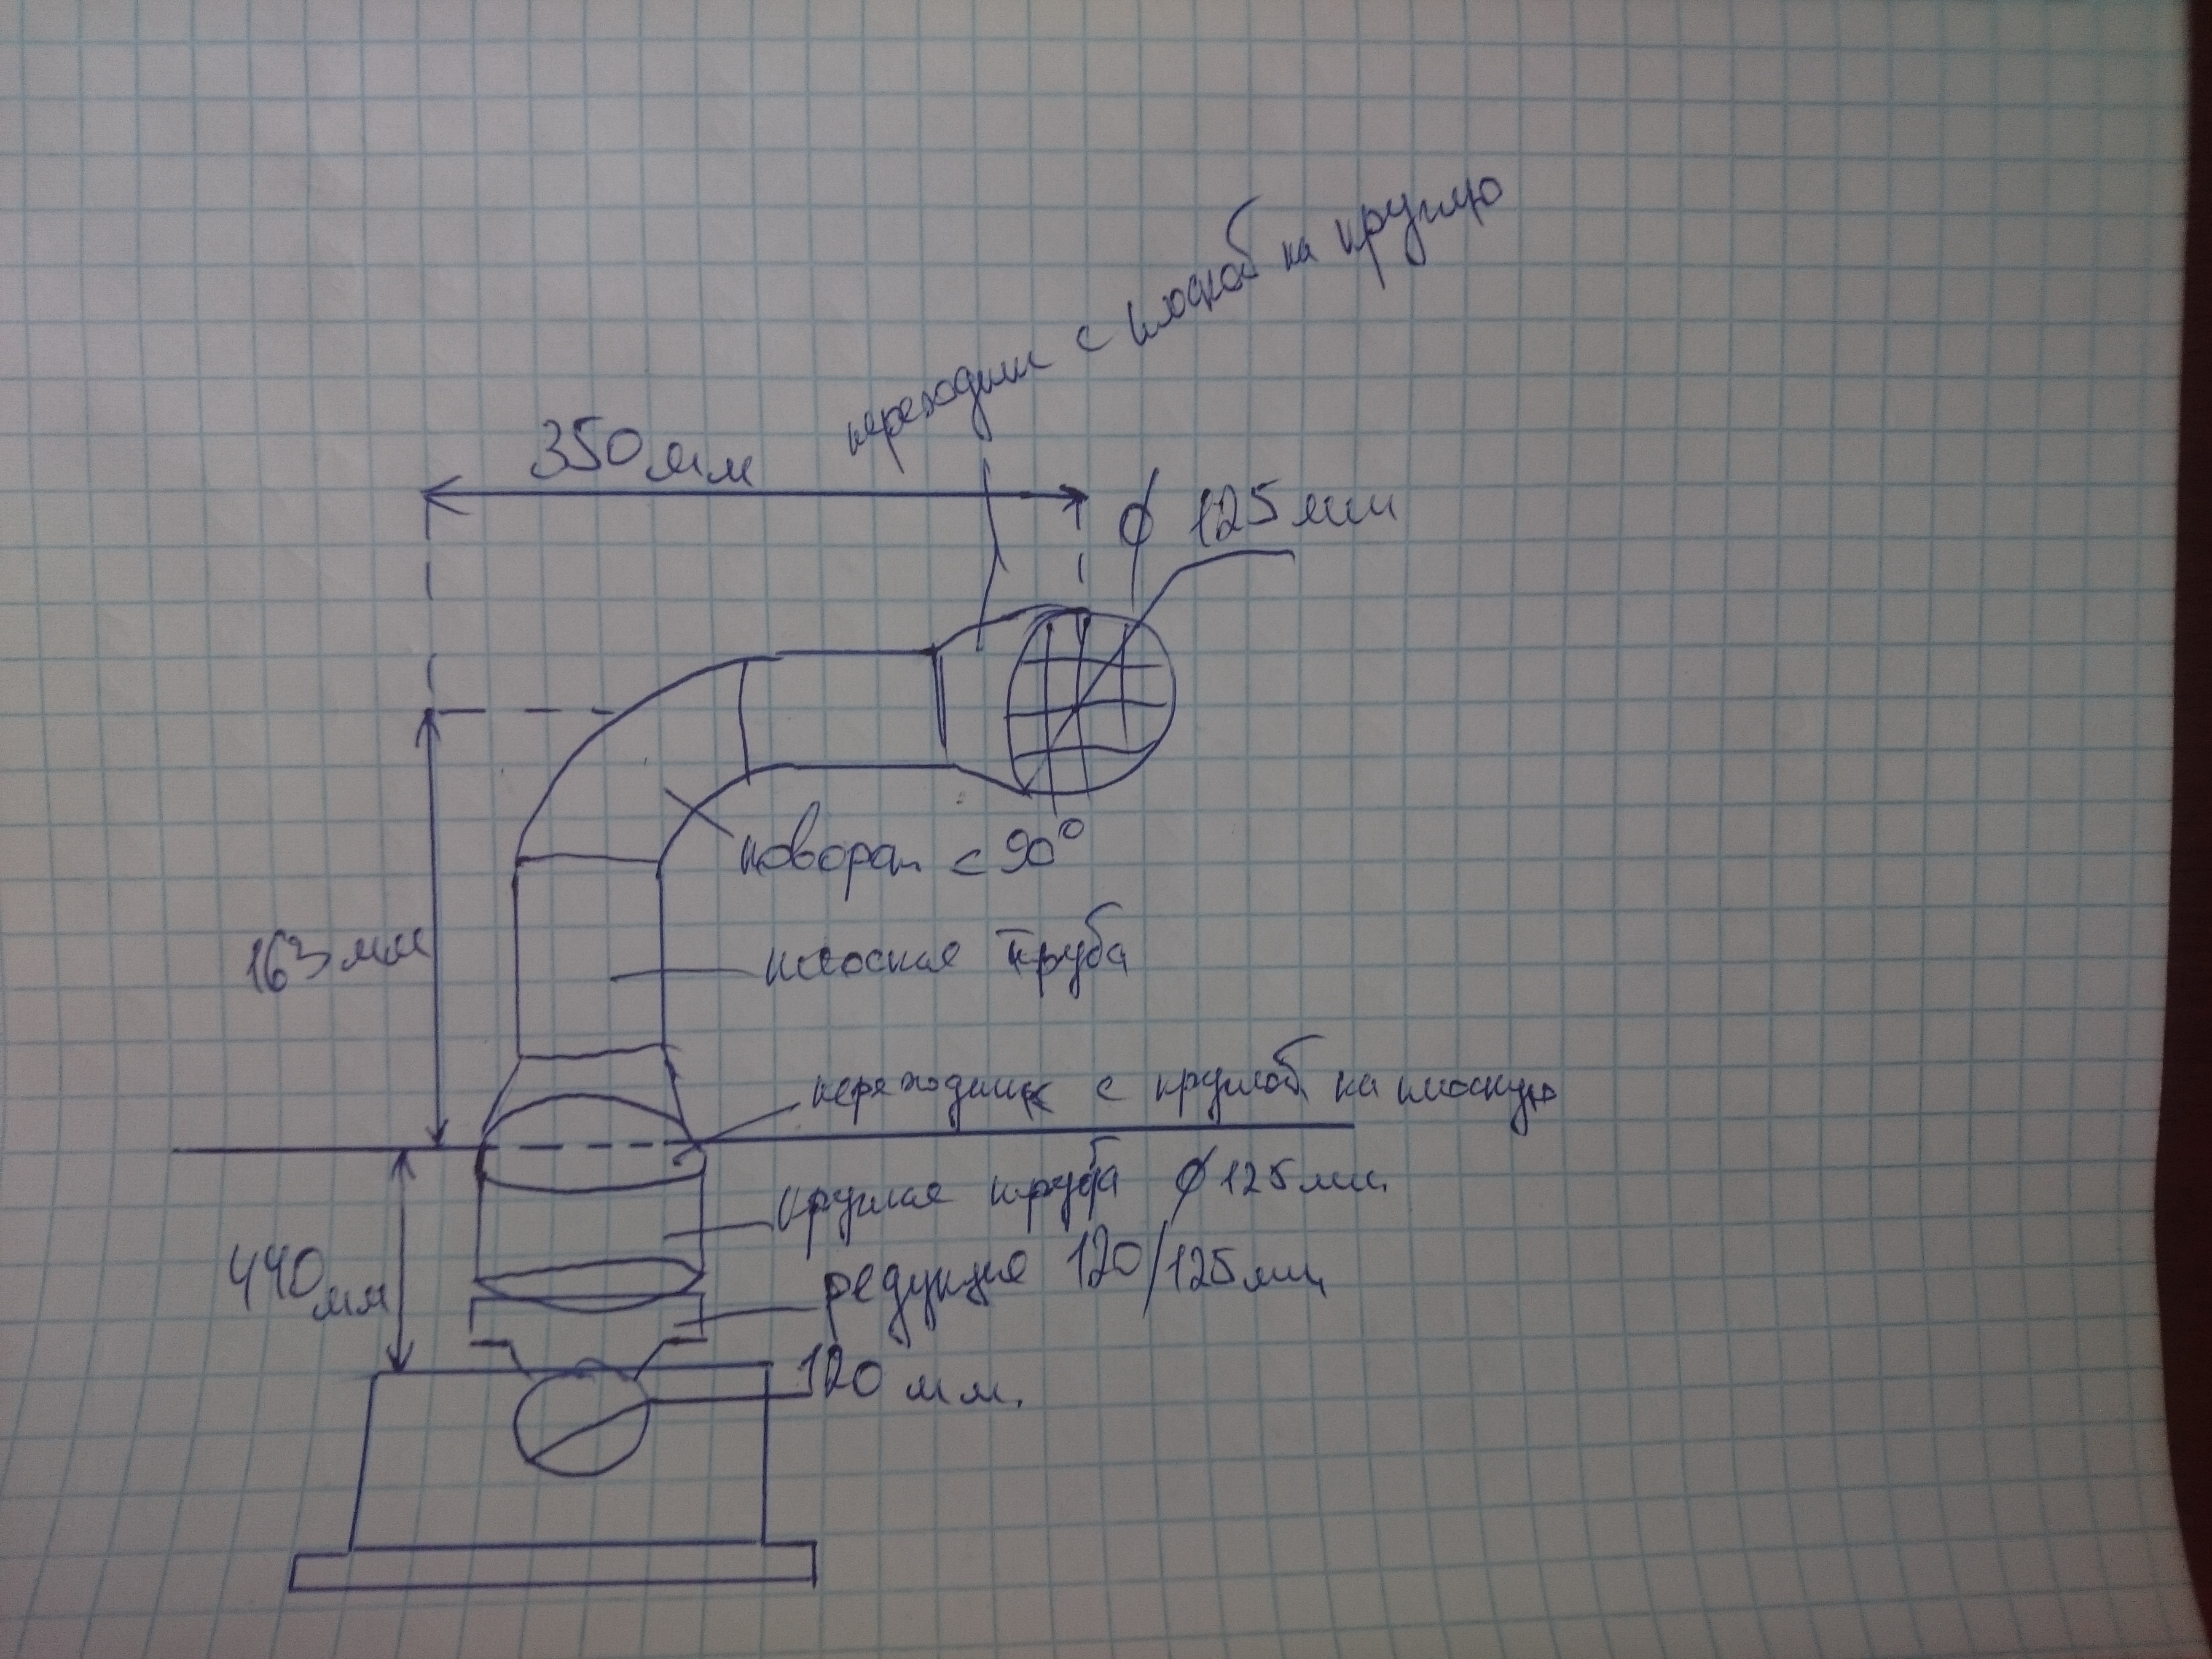 переходник с плоской на круглую
350 мм
⌀ 125 мм
поворот < 90°
163 мм
плоская труба
переходник с круглой на плоскую
круглая труба ⌀125 мм.
440 мм
редукция 120/125 мм
120 мм.